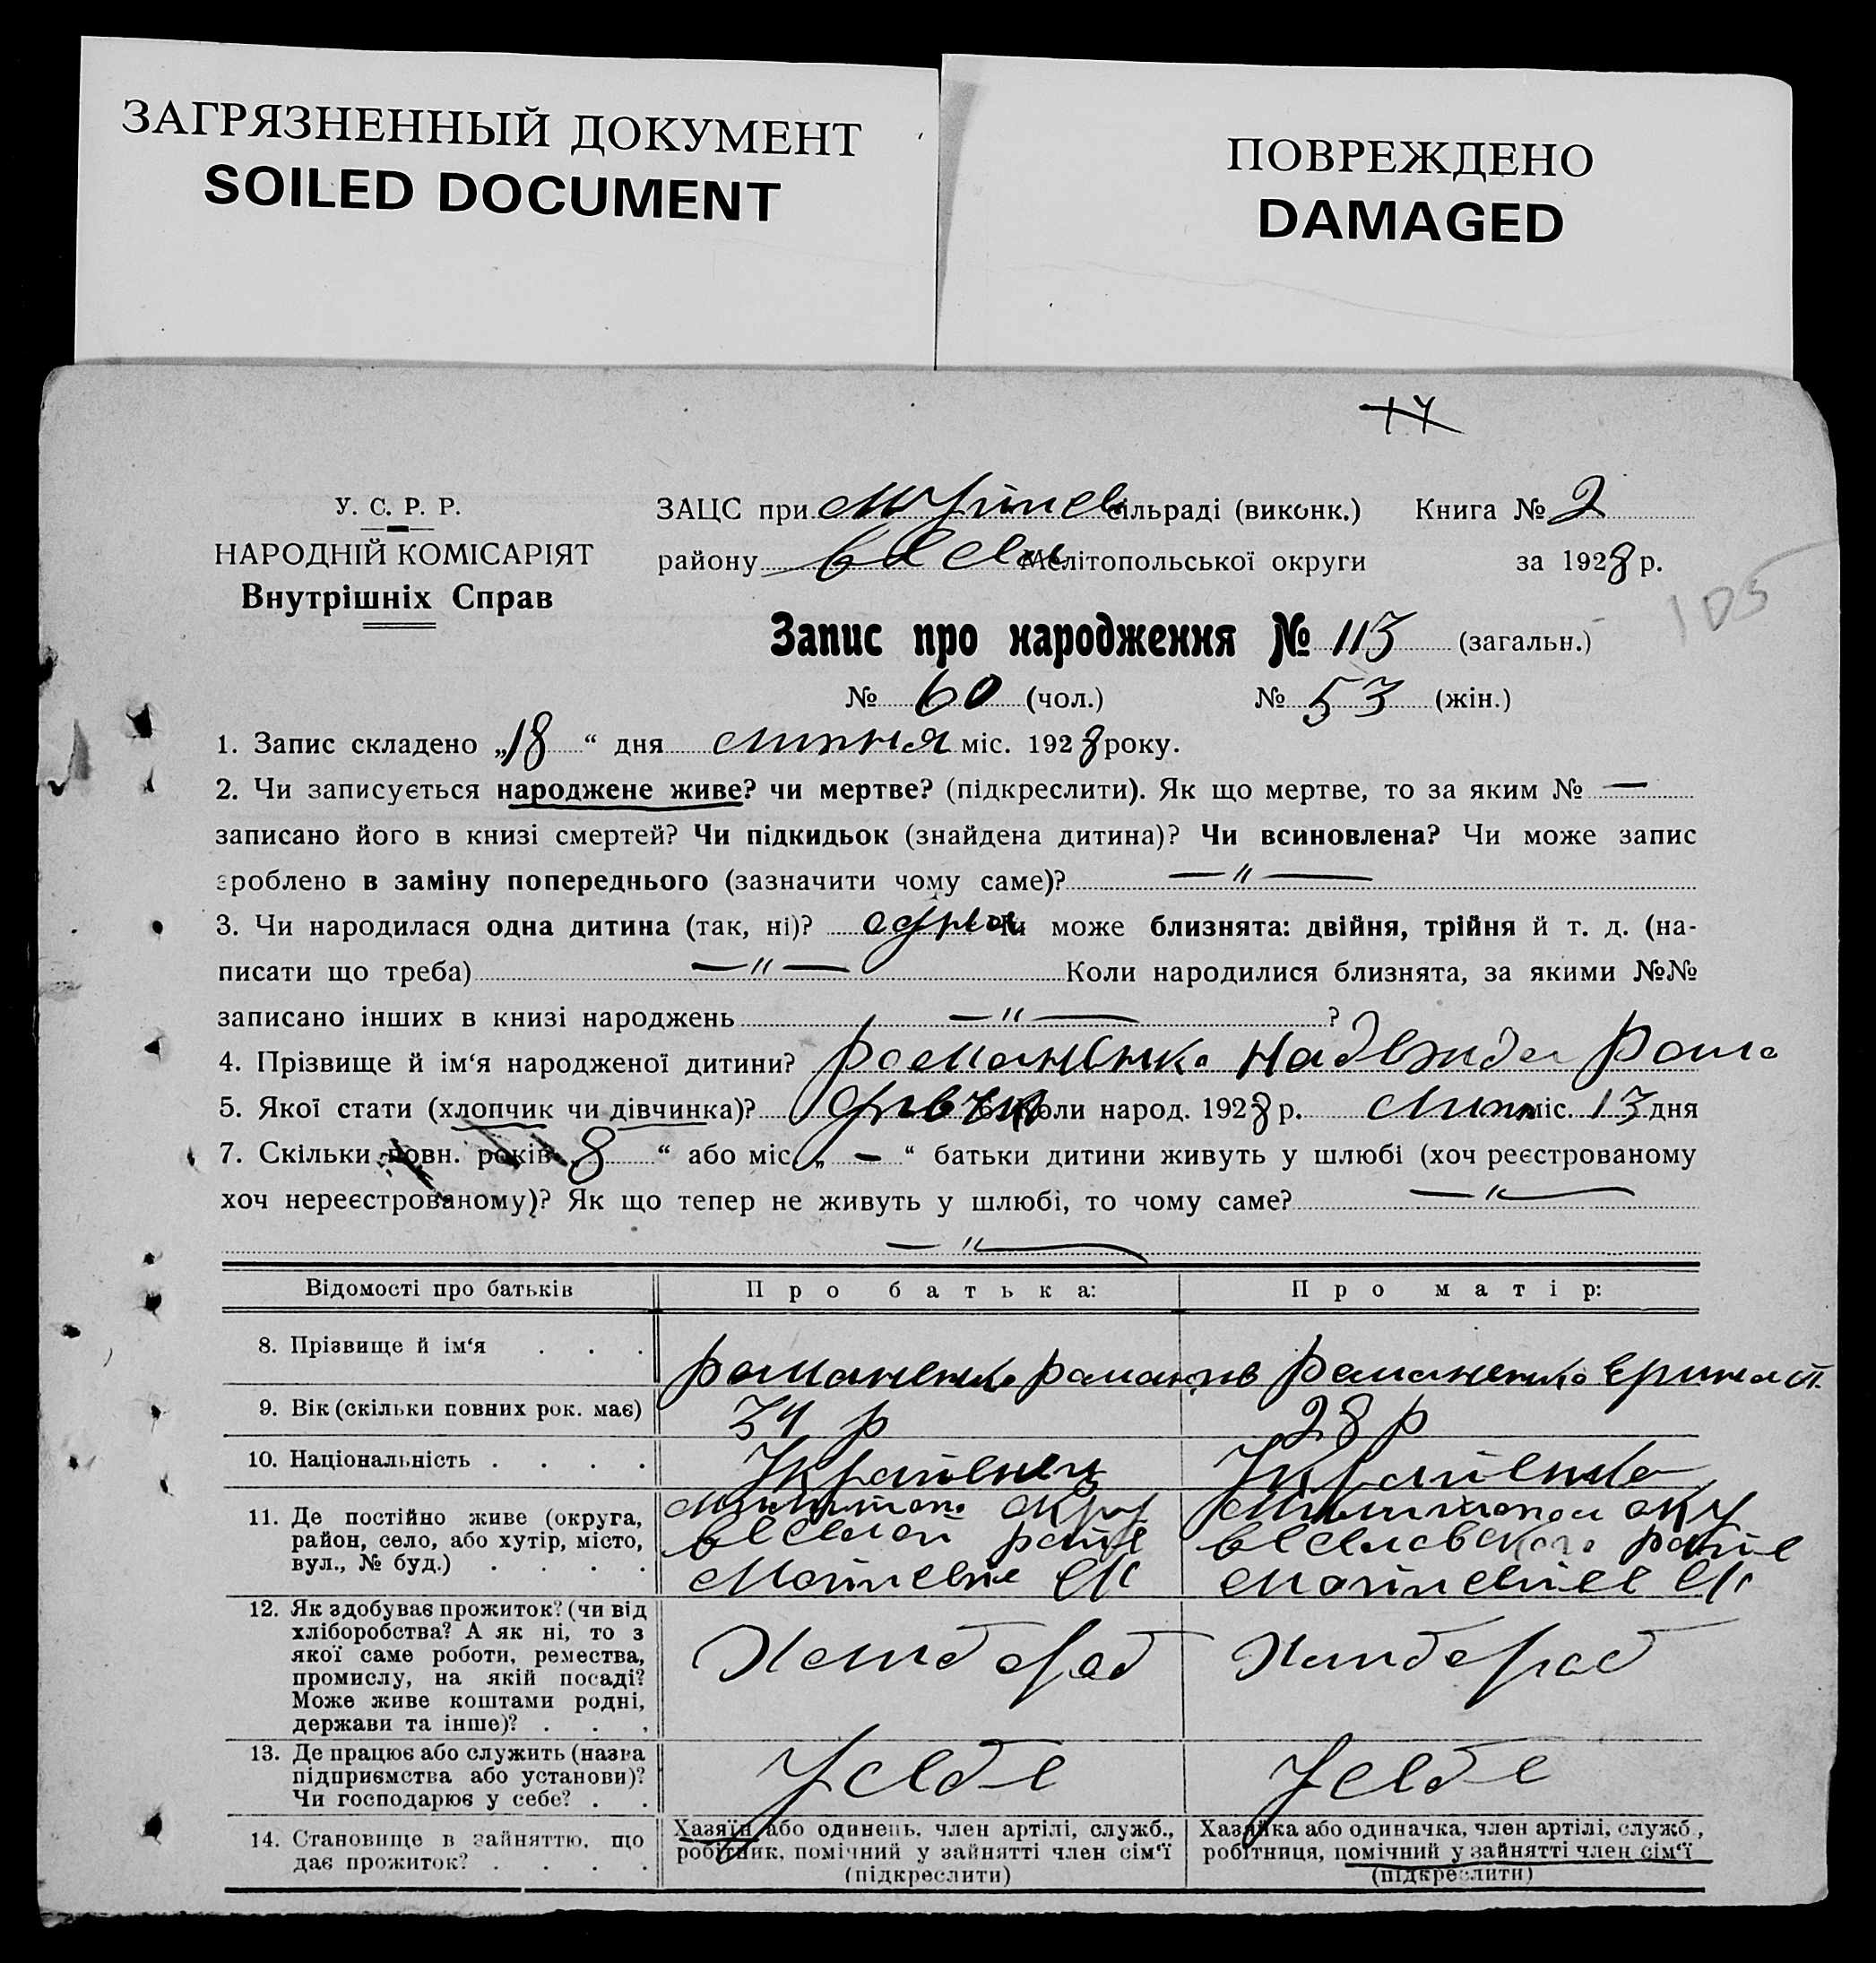 ЗАГРЯЗНЕННЫЙ ДОКУМЕНТ
SOILED DOCUMENT
ПОВРЕЖДЕНО
DAMAGED
У. С. Р. Р.
НАРОДНІЙ КОМІСАРІЯТ
Внутрішніх Справ
ЗАЦС при сільраді (виконк.) Книга № 2
району Мелітопольської округи за 1928 р.
105
Запис про народження № 113 (загальн.)
№ 60 (чол.) № 53 (жін.)
1. Запис складено „18“ дня липня міс. 1928 року.
2. Чи записується народжене живе? чи мертве? (підкреслити). Як що мертве, то за яким № —
записано його в книзі смертей? Чи підкидьок (знайдена дитина)? Чи всиновлена? Чи може запис
зроблено в заміну попереднього (зазначити чому саме)? — " —
3. Чи народилася одна дитина (так, ні)? одна Чи може близнята: двійня, трійня й т. д. (на-
писати що треба) — " — Коли народилися близнята, за якими №№
записано інших в книзі народжень — " — ?
4. Прізвище й ім‘я народженої дитини? Романенко Надежда Рома
5. Якої стати (хлопчик чи дівчинка)? 6. Коли народ. 1928 р. Липн міс. 13 дня
7. Скільки повн. років „8“ або міс. „—“ батьки дитини живуть у шлюбі (хоч реєстрованому
хоч нереєстрованому)? Як що тепер не живуть у шлюбі, то чому саме? — " —
— " —
Відомості про батьків Про батька: Про матір:
8. Прізвище й ім‘я . . . Романенко Роман Романенко
9. Вік (скільки повних рок. має) 34 р 28 р
10. Національність . . . . Українец Украіенка
11. Де постійно живе (округа,
район, село, або хутір, місто,
вул., № буд.) . . . .
округ
веселой райе
веселовского райе
12. Як здобуває прожиток? (чи від
хліборобства? А як ні, то з
якої саме роботи, ремества,
промислу, на якій посаді?
Може живе коштами родні,
держави та інше)? . . .
Хлибороб Хлибороб
13. Де працює або служить (назва
підприємства або установи)?
Чи господарює у себе? . .
У себе У себе
14. Становище в зайняттю, що
дає прожиток? . . . .
Хазяїн або одинець, член артілі, служб.,
робітник, помічний у зайнятті член сім‘ї
(підкреслити)
Хазяйка або одиначка, член артілі, служб.,
робітниця, помічний у зайнятті член сім‘ї
(підкреслити)